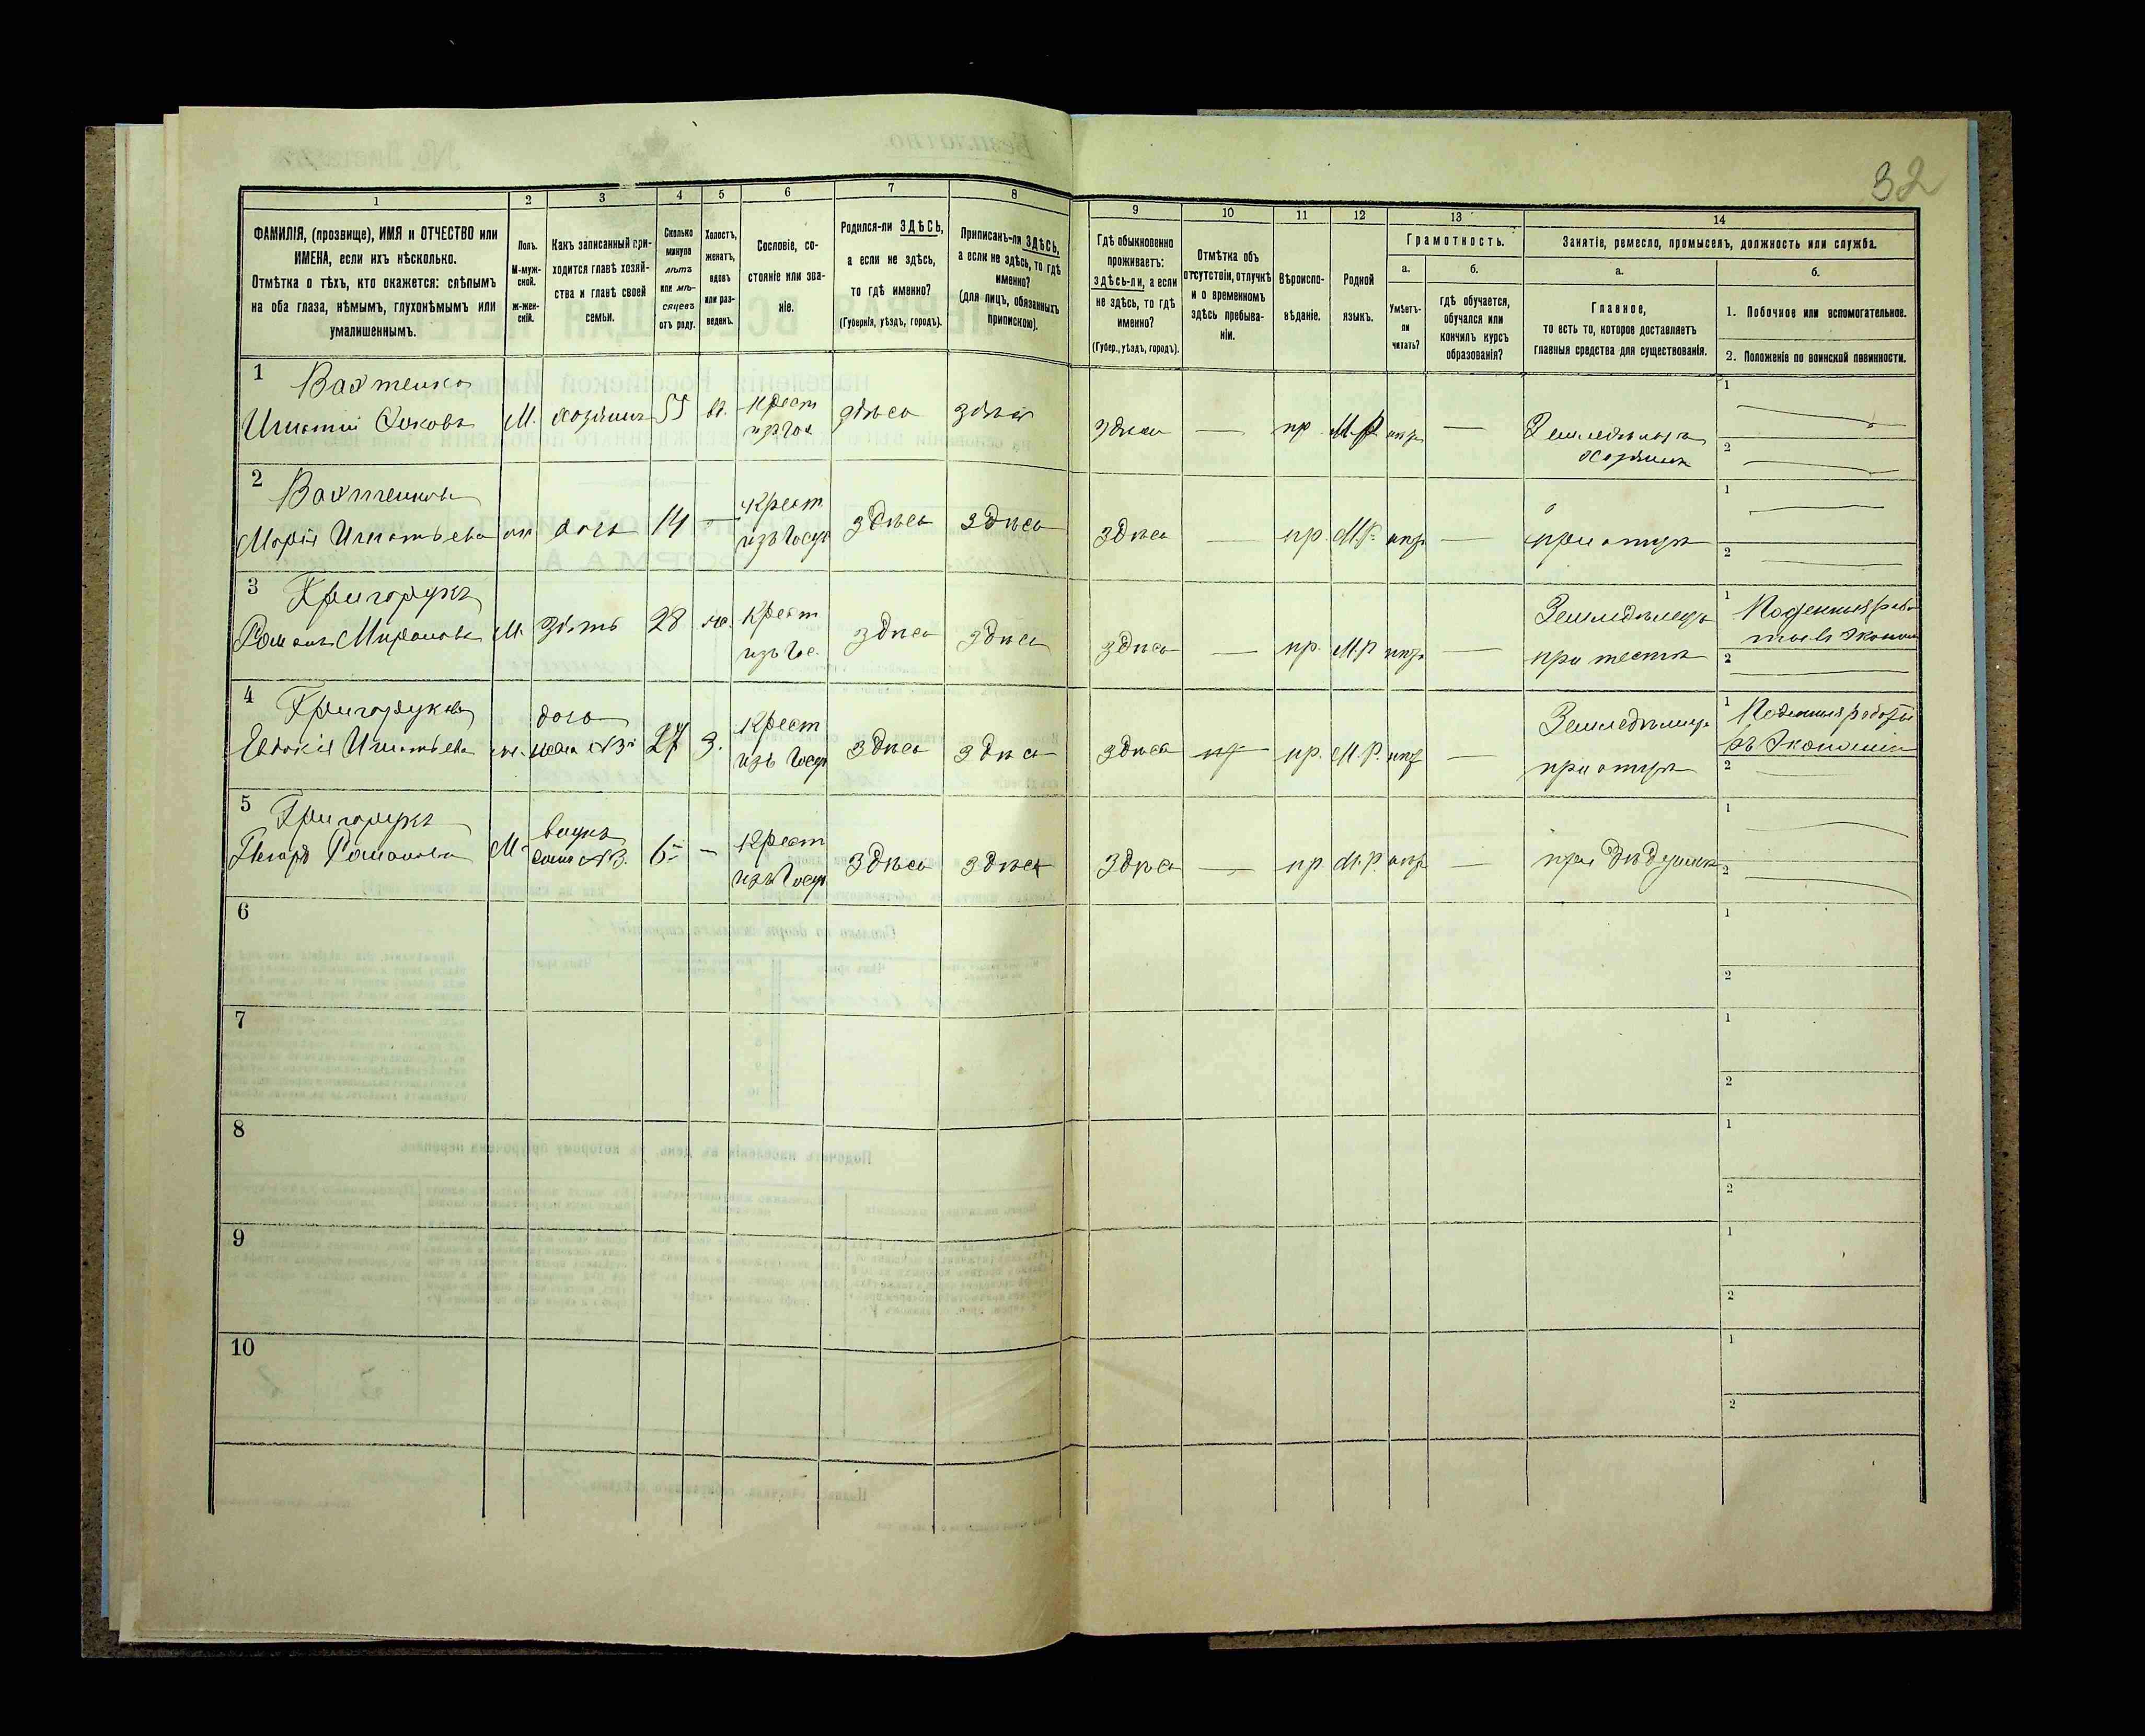 32
1
2
3
4
5
6
7
8
9
10
11
12
13
14
ФАМИЛІЯ, (прозвище), ИМЯ и ОТЧЕСТВО или
ИМЕНА, если ихъ нѣсколько.
Отмѣтка о тѣхъ, кто окажется: слѣпымъ
на оба глаза, нѣмымъ, глухонѣмымъ или
умалишеннымъ.
Полъ.
М-муж-
ской.
ж-жен-
скій.
Какъ записанный при-
ходится главѣ хозяй-
ства и главѣ своей
семьи.
Сколько
минуло
лѣтъ
или мѣ-
сяцевъ
отъ роду.
Холостъ,
женатъ,
вдовъ
или раз-
веденъ.
Сословіе, со-
стояніе или зва-
ніе.
Родился-ли ЗДѢСЬ,
а если не здѣсь,
то гдѣ именно?
(Губернія, уѣздъ, городъ).
Приписанъ-ли ЗДѢСЬ,
а если не здѣсь, то гдѣ
именно?
(для лицъ, обязанныхъ
припискою).
Гдѣ обыкновенно
проживаетъ:
ЗДѢСЬ-ли, а если
не здѣсь, то гдѣ
именно?
(Губер., уѣздъ, городъ).
Отмѣтка объ
отсутствіи, отлучкѣ
и о временномъ
здѣсь пребыва-
ніи.
Вѣроиспо-
вѣданіе.
Родной
языкъ.
Грамотность.
а.
Умѣетъ-
ли
читать?
б.
гдѣ обучается,
обучался или
кончилъ курсъ
образованія?
Занятіе, ремесло, промыселъ, должность или служба.
а.
Главное,
то есть то, которое доставляетъ
главныя средства для существованія.
б.
1. Побочное или вспомогательное.
2. Положеніе по воинской повинности.
1 Вахтенко
Игнатій М. хозяинъ 55 в. Крест здѣсь здѣсь здѣсь — пр. М.Р. — 1
хозяинъ 2
2 Вахтенкова
Марія Игнатьева дочь 14 — Крест изъ Госуд здѣсь здѣсь здѣсь — пр. М.Р. — при отцѣ 1
2
3 Григорукъ
Романъ Мироновъ М. зять 28 ж. Крест изъ Гос. здѣсь здѣсь здѣсь — пр. М.Р. — Земледѣлецъ при тестѣ 1
2
4 Григорукова
Евдокія Игнатьева дочь жена №3 27 з. Крест изъ Госуд здѣсь здѣсь здѣсь пр. М.Р. — при отцѣ 1 Поденныя работы
въ Экономіи
2
5 Григорукъ
Романовъ М. внукъ сынъ №3. 6 — Крест изъ Госуд здѣсь здѣсь здѣсь — пр. М.Р. — при дѣдушкѣ 1
2
6 1
2
7 1
2
8 1
2
9 1
2
10 1
2